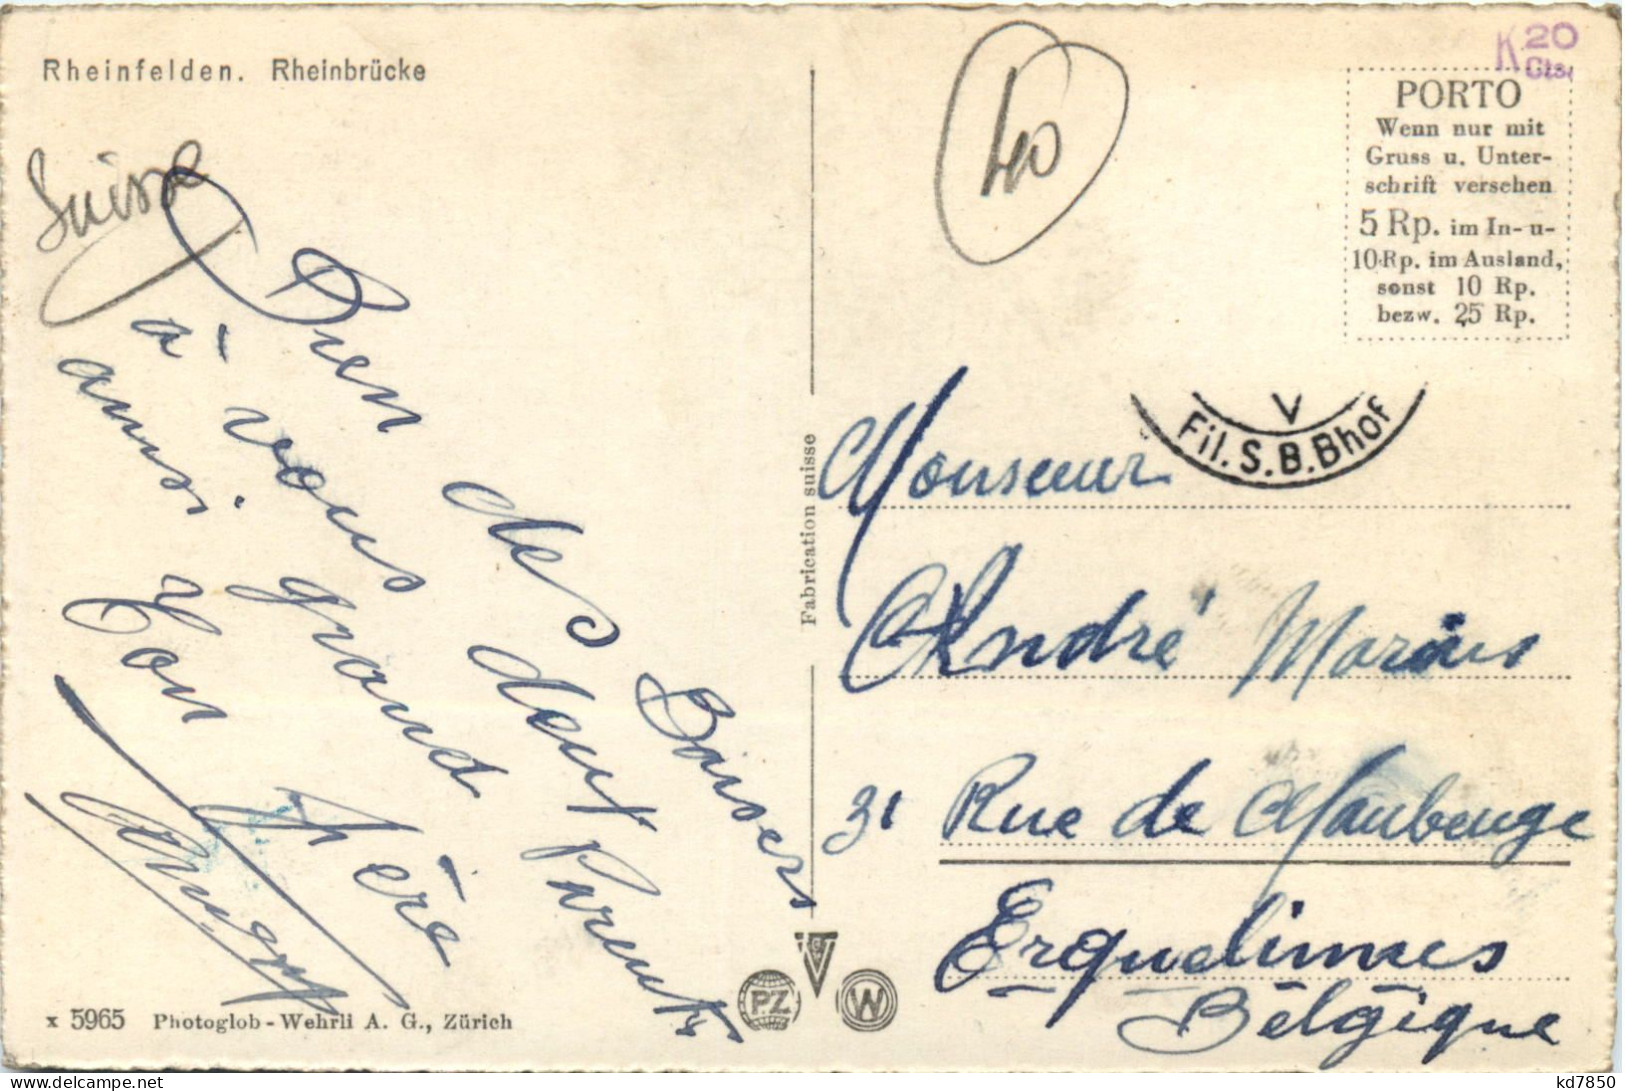 Rheinfelden. Rheinbrücke
Suisse
Bien des Baisers
à vous deux Parents
aussi grand
Ton Frère
x 5965 Photoglob-Wehrli A. G., Zürich
Fabrication suisse
PZ
W
40
K 20
Cts.
PORTO
Wenn nur mit
Gruss u. Unter-
schrift versehen
5 Rp. im In- u-
10 Rp. im Ausland,
sonst 10 Rp.
bezw. 25 Rp.
V
Fil. S.B.Bhof
Monsieur
André
31 Rue de Maubeuge
Erquelinnes
Belgique
kd7850